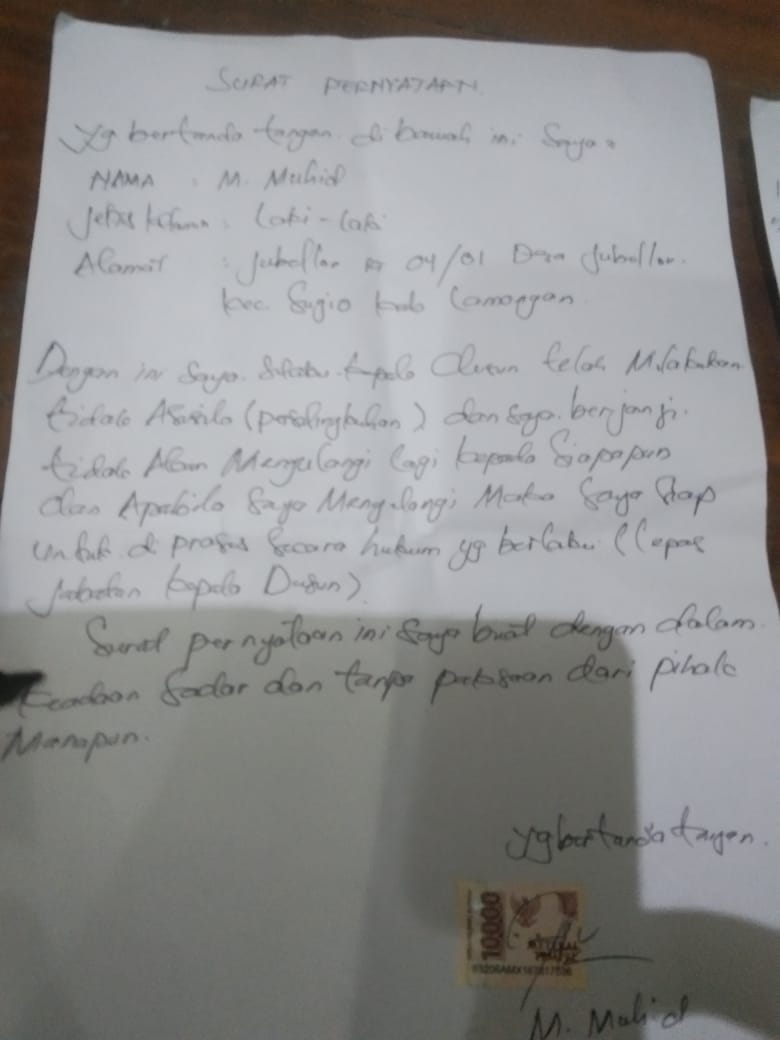 SURAT PERNYATAAN
yg bertanda tangan di bawah ini Saya :
NAMA : M. Muhid
Jenis kelamin : Laki-laki
Alamat : Jubellor RT 04/01 Desa Jubellor
kec. Sugio kab Lamongan
Dengan ini Saya Selaku kepala dusun telah Melakukan
tidak Asusila (perselingkuhan) dan saya berjanji
tidak Akan Mengulangi lagi kepada Siapapun
dan Apabila Saya Mengulangi Maka Saya Siap
untuk di proses Secara hukum yg berlaku (Lepas
Jabatan kepala Dusun)
Surat pernyataan ini Saya buat dengan dalam
keadaan Sadar dan tanpa paksaan dari pihak
Manapun.
yg bertanda tangan
10000
M. Muhid